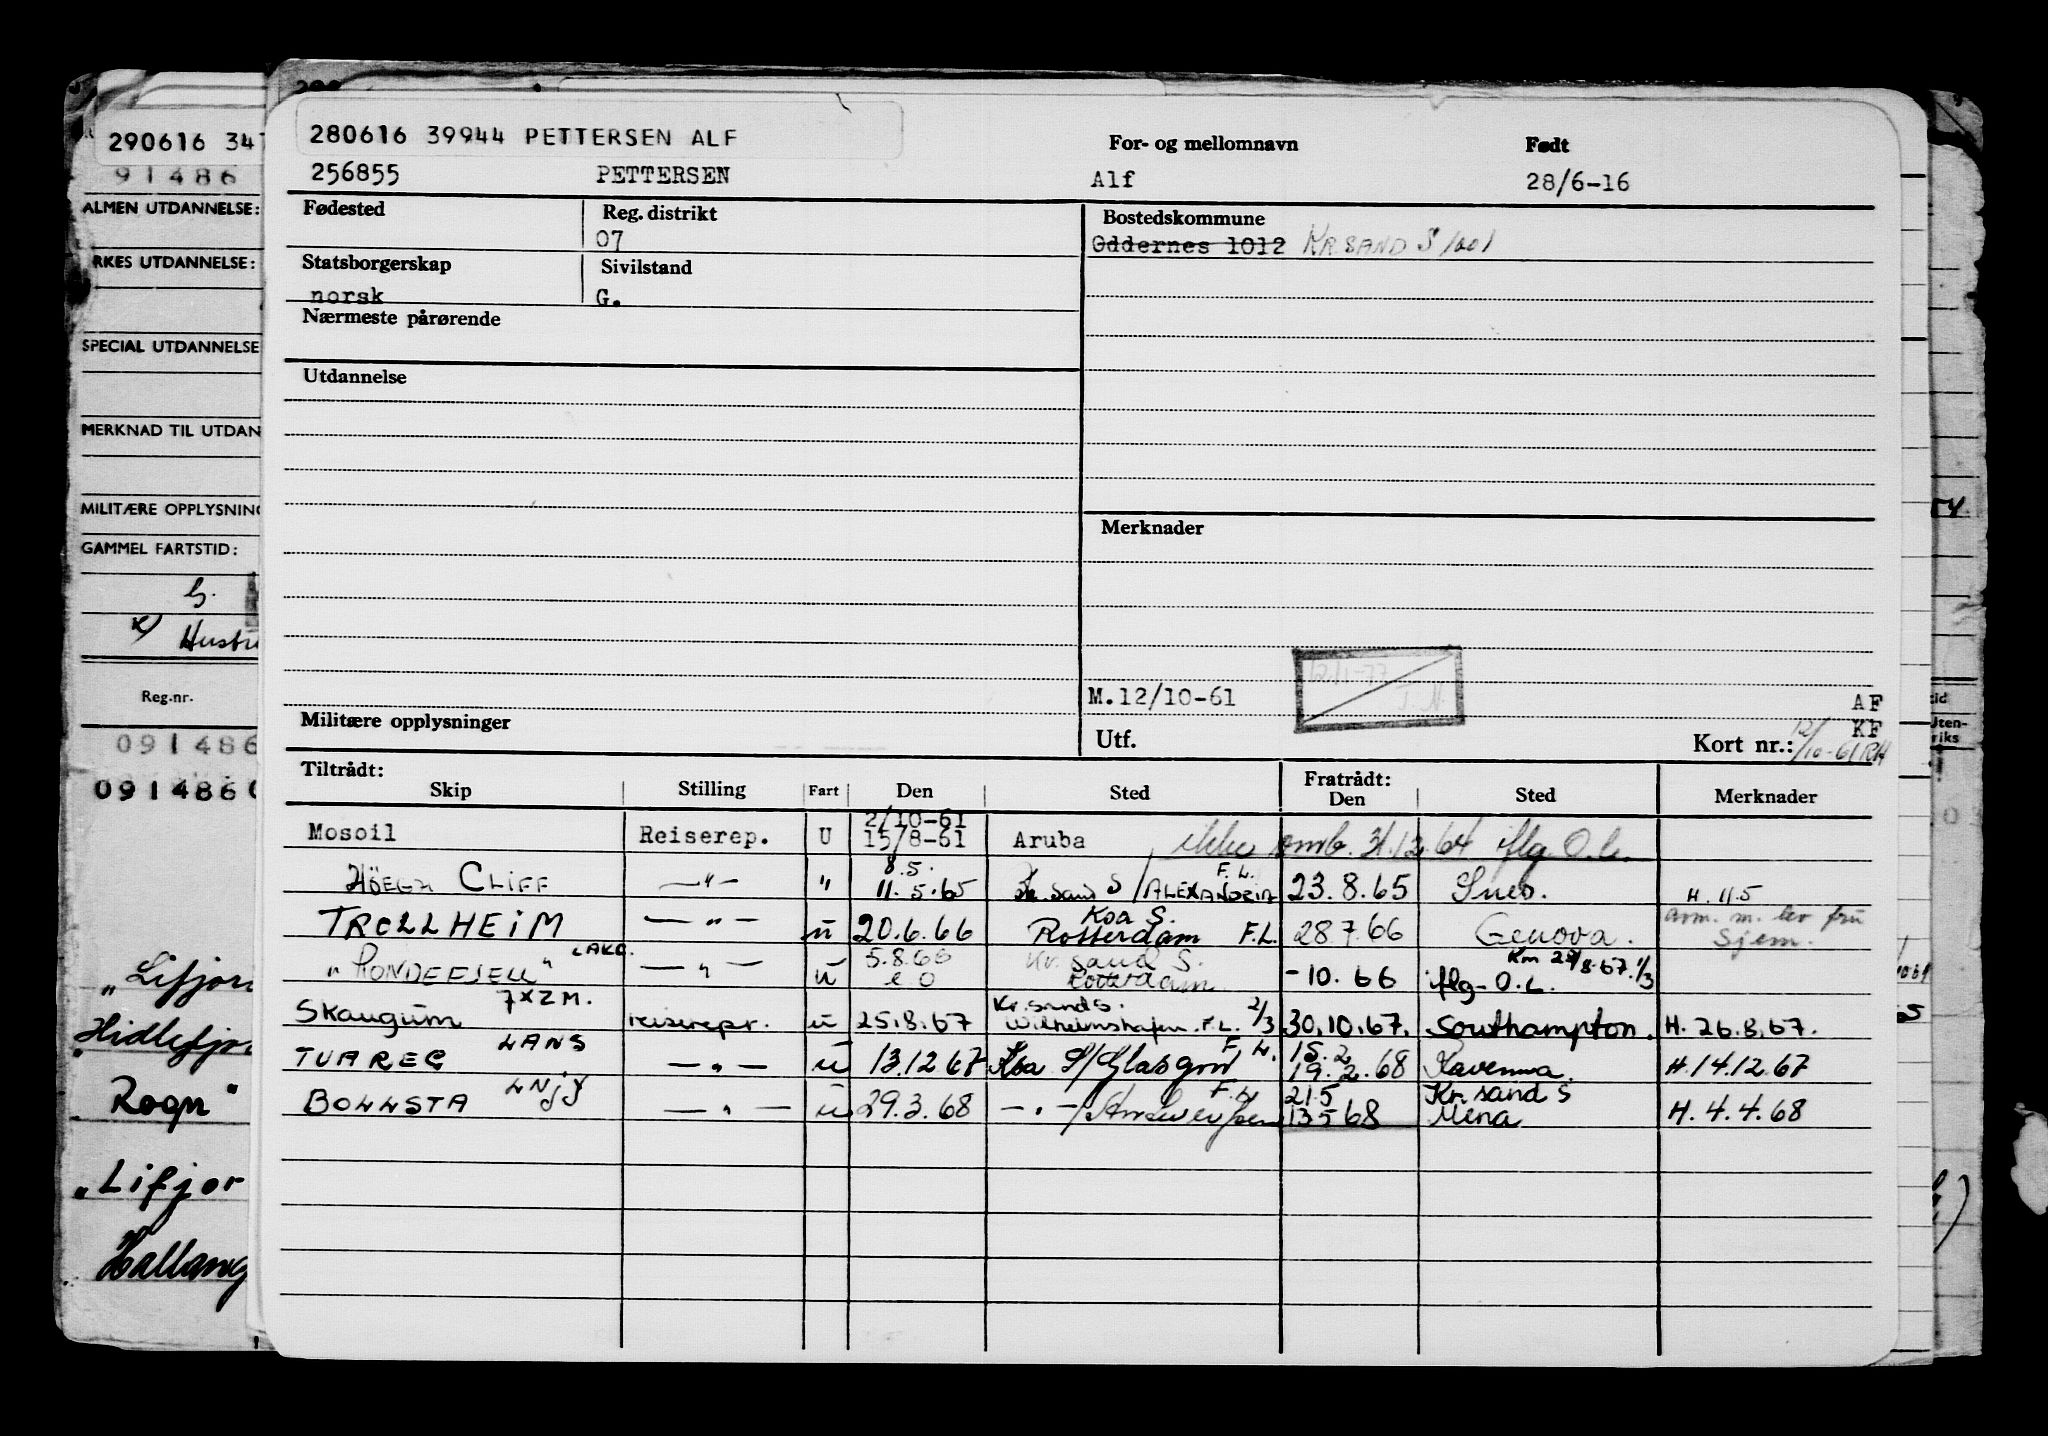 290616 341
91486
ALMEN UTDANNELSE:
RKES UTDANNELSE:
SPECIAL UTDANNELSE
MERKNAD TIL UTDAN
MILITÆRE OPPLYSNING
GAMMEL FARTSTID:
G.
x) Hustru
Reg.nr.
091486
091486
"Lifjor
Hidlefjor
Rogn"
"Lifjor
Hallang
280616 39944 PETTERSEN ALF
256855 PETTERSEN
For- og mellomnavn
Alf
Født
28/6-16
Fødested
Reg. distrikt
07
Bostedskommune
Oddernes 1012 KR.SAND S 1001
Statsborgerskap
norsk
Sivilstand
G.
Nærmeste pårørende
Utdannelse
Merknader
M.12/10-61
12/1-77
J.N.
AF
KF
Militære opplysninger
Utf.
Kort nr.: 12/10-61 RH
Tiltrådt: Fratrådt:
Skip Stilling Fart Den Sted Den Sted Merknader
2/10-61
Mosoil Reiserep. U 15/8-61 Aruba ikke omb. 31.12.64 iflg. O.L.
8.5. F.L.
HÖEGH CLIFF —"— " 11.5.65 Kr. Sand S /ALEXANDRIA 23.8.65 Sues. H. 11.5
Ksa S. arm. m. lev fru
TROLLHEIM —"— u 20.6.66 Rotterdam F.L. 28.7.66 Genova. Sjøm.
LAKC. 5.8.66 Kr. Sand S.
"RONDEFJELL" —"— u Rotterdam -10.66 iflg. O.L. 1/3
7XZM. Kr.sand S. 2/3
Skaugum reiserepr. u 25.8.67 Wilhelmshafen. F.L. 30.10.67. Southampton. H. 26.8.67.
LANS F.L. 15.2
TUAREG —"— u 13.12 67 Ksa S/Glasgow 19.2.68 Ravenna. H.14.12.67
LNJY F.L. 21.5 Kr.sand S
BOLLSTA —"— u 29.3.68 —"—/Antwerpen 13.5 68 Mena H. 4.4.68